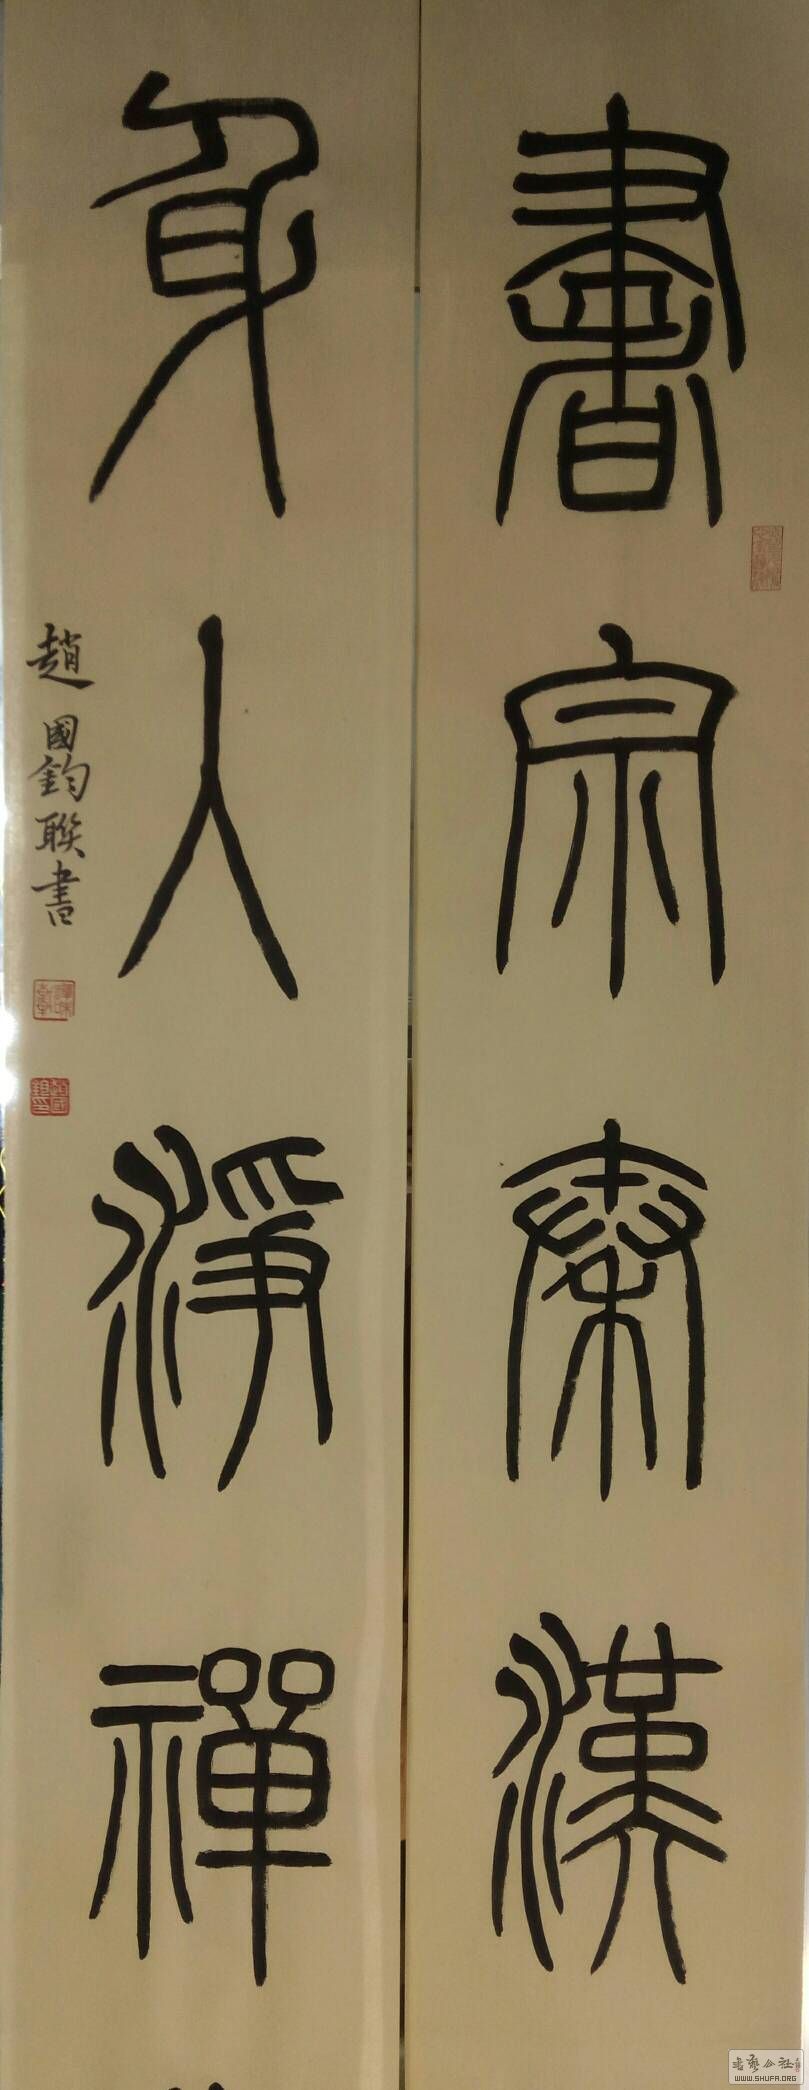 書宗秦漢
身入淨禪
趙國鈞聯書
书艺公社
WWW.SHUFA.ORG